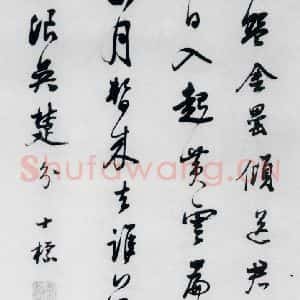 金罍傾送君
日入起黄雲
月暫來去誰
吳楚分 士標
Shufawang.CN